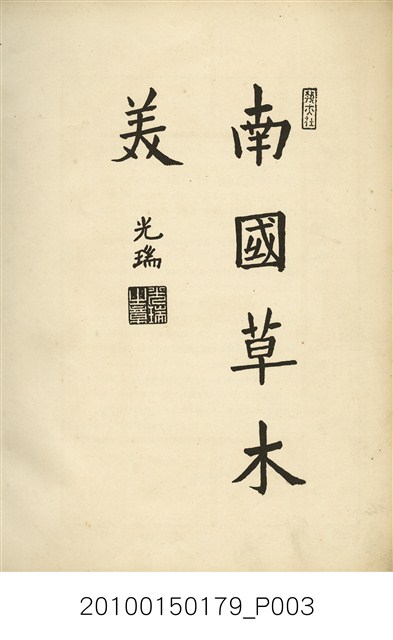 南國草木
美
光瑞
光瑞之章
20100150179_P003